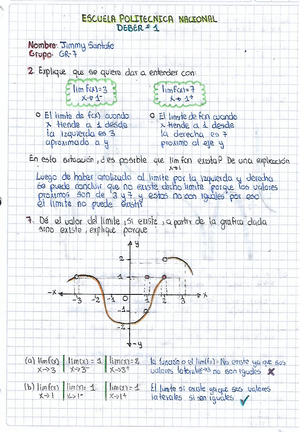 ESCUELA POLITECNICA NACIONAL
DEBER # 1
Nombre: Jimmy Santafe
Grupo: GR-7
2. Explique que se quiere dar a entender con
lim f(x)=3 lim f(x)=7
x→1⁻ x→1⁺
El limite de f(x) cuando El limite de f(x) cuando
x tiende a 1 desde x tiende a 1 desde
la izquierda es 3 la derecha, es 7
aproximado a y proximo al eje y
En esta situación, ¿es posible que lim f(x) exista? De una explicación
x→1
Luego de haber analizado al limite por la izquierda y derecha
se puede concluir que no existe dicho limite porque los valores
proximos son de 3 y 7 y estos no son iguales por eso
el limite no puede existir
7. De el valor del limite, si existe, a partir de la grafica dada
sino existe, explique porque
2
1
-x -3 -2 -1 0 1 2 3 x
-1
-2
-y
(a) lim f(x) lim f(x) = 1 lim f(x) = 2 la funcion o el lim f(x) No existe ya que sus
x→3 x→3⁻ x→3⁺ valores laterales no son iguales ✗
(b) lim f(x) lim f(x) = 1 lim f(x) = 1 El limite si existe ya que sus valores
x→1 x→1⁻ x→1⁺ laterales si son iguales ✓